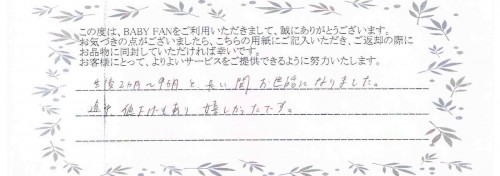 この度は、BABY FANをご利用いただきまして、誠にありがとうございます。
お気づきの点がございましたら、こちらの用紙にご記入いただき、ご返却の際に
お品物に同封していただければ幸いです。
お客様にとって、よりよいサービスをご提供できるように努力いたします。
生後2ヶ月〜9ヶ月と長い間お世話になりました。
途中値下げもあり嬉しかったです。